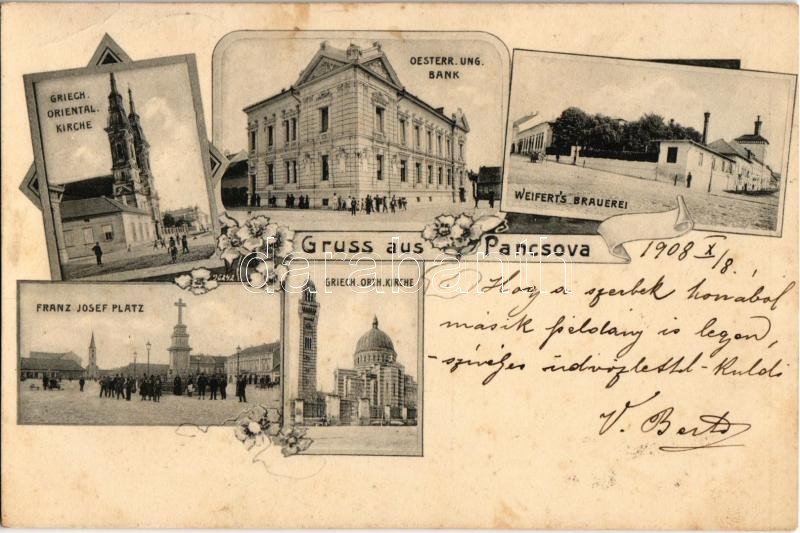 GRIECH.
ORIENTAL.
KIRCHE
OESTERR. UNG.
BANK
WEIFERT'S BRAUEREI
Gruss aus Pancsova
FRANZ JOSEF PLATZ
GRIECH. ORTH. KIRCHE
1908 X/8.
Hogy a szerbek honából
másik példány is legyen,
szíves üdvözlettel - küldi
V. Berta
darabanth